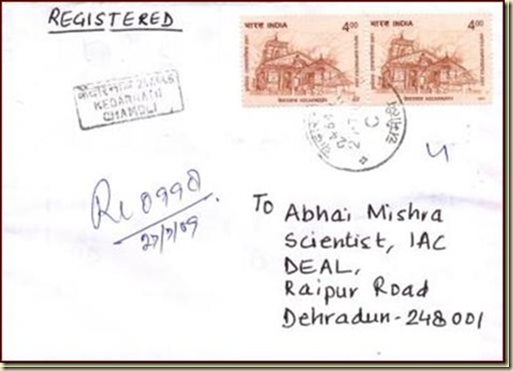 REGISTERED
भारत INDIA 4.00
भारत INDIA 4.00
केदारनाथ KEDARNATH
केदारनाथ KEDARNATH
KEDARNATH
CHAMOLI
C
4
27/7/09
To Abhai Mishra
Scientist, IAC
DEAL,
Raipur Road
Dehradun-248001